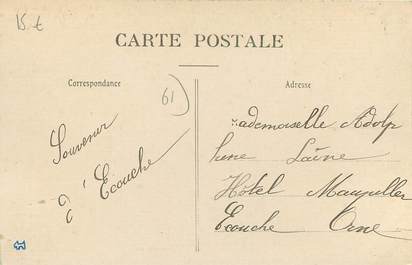 15 €
CARTE POSTALE
Correspondance
61
Adresse
Souvenir
d'Ecouche
Mademoiselle Adolp
hine Laîne
Hôtel
Ecouche Orne